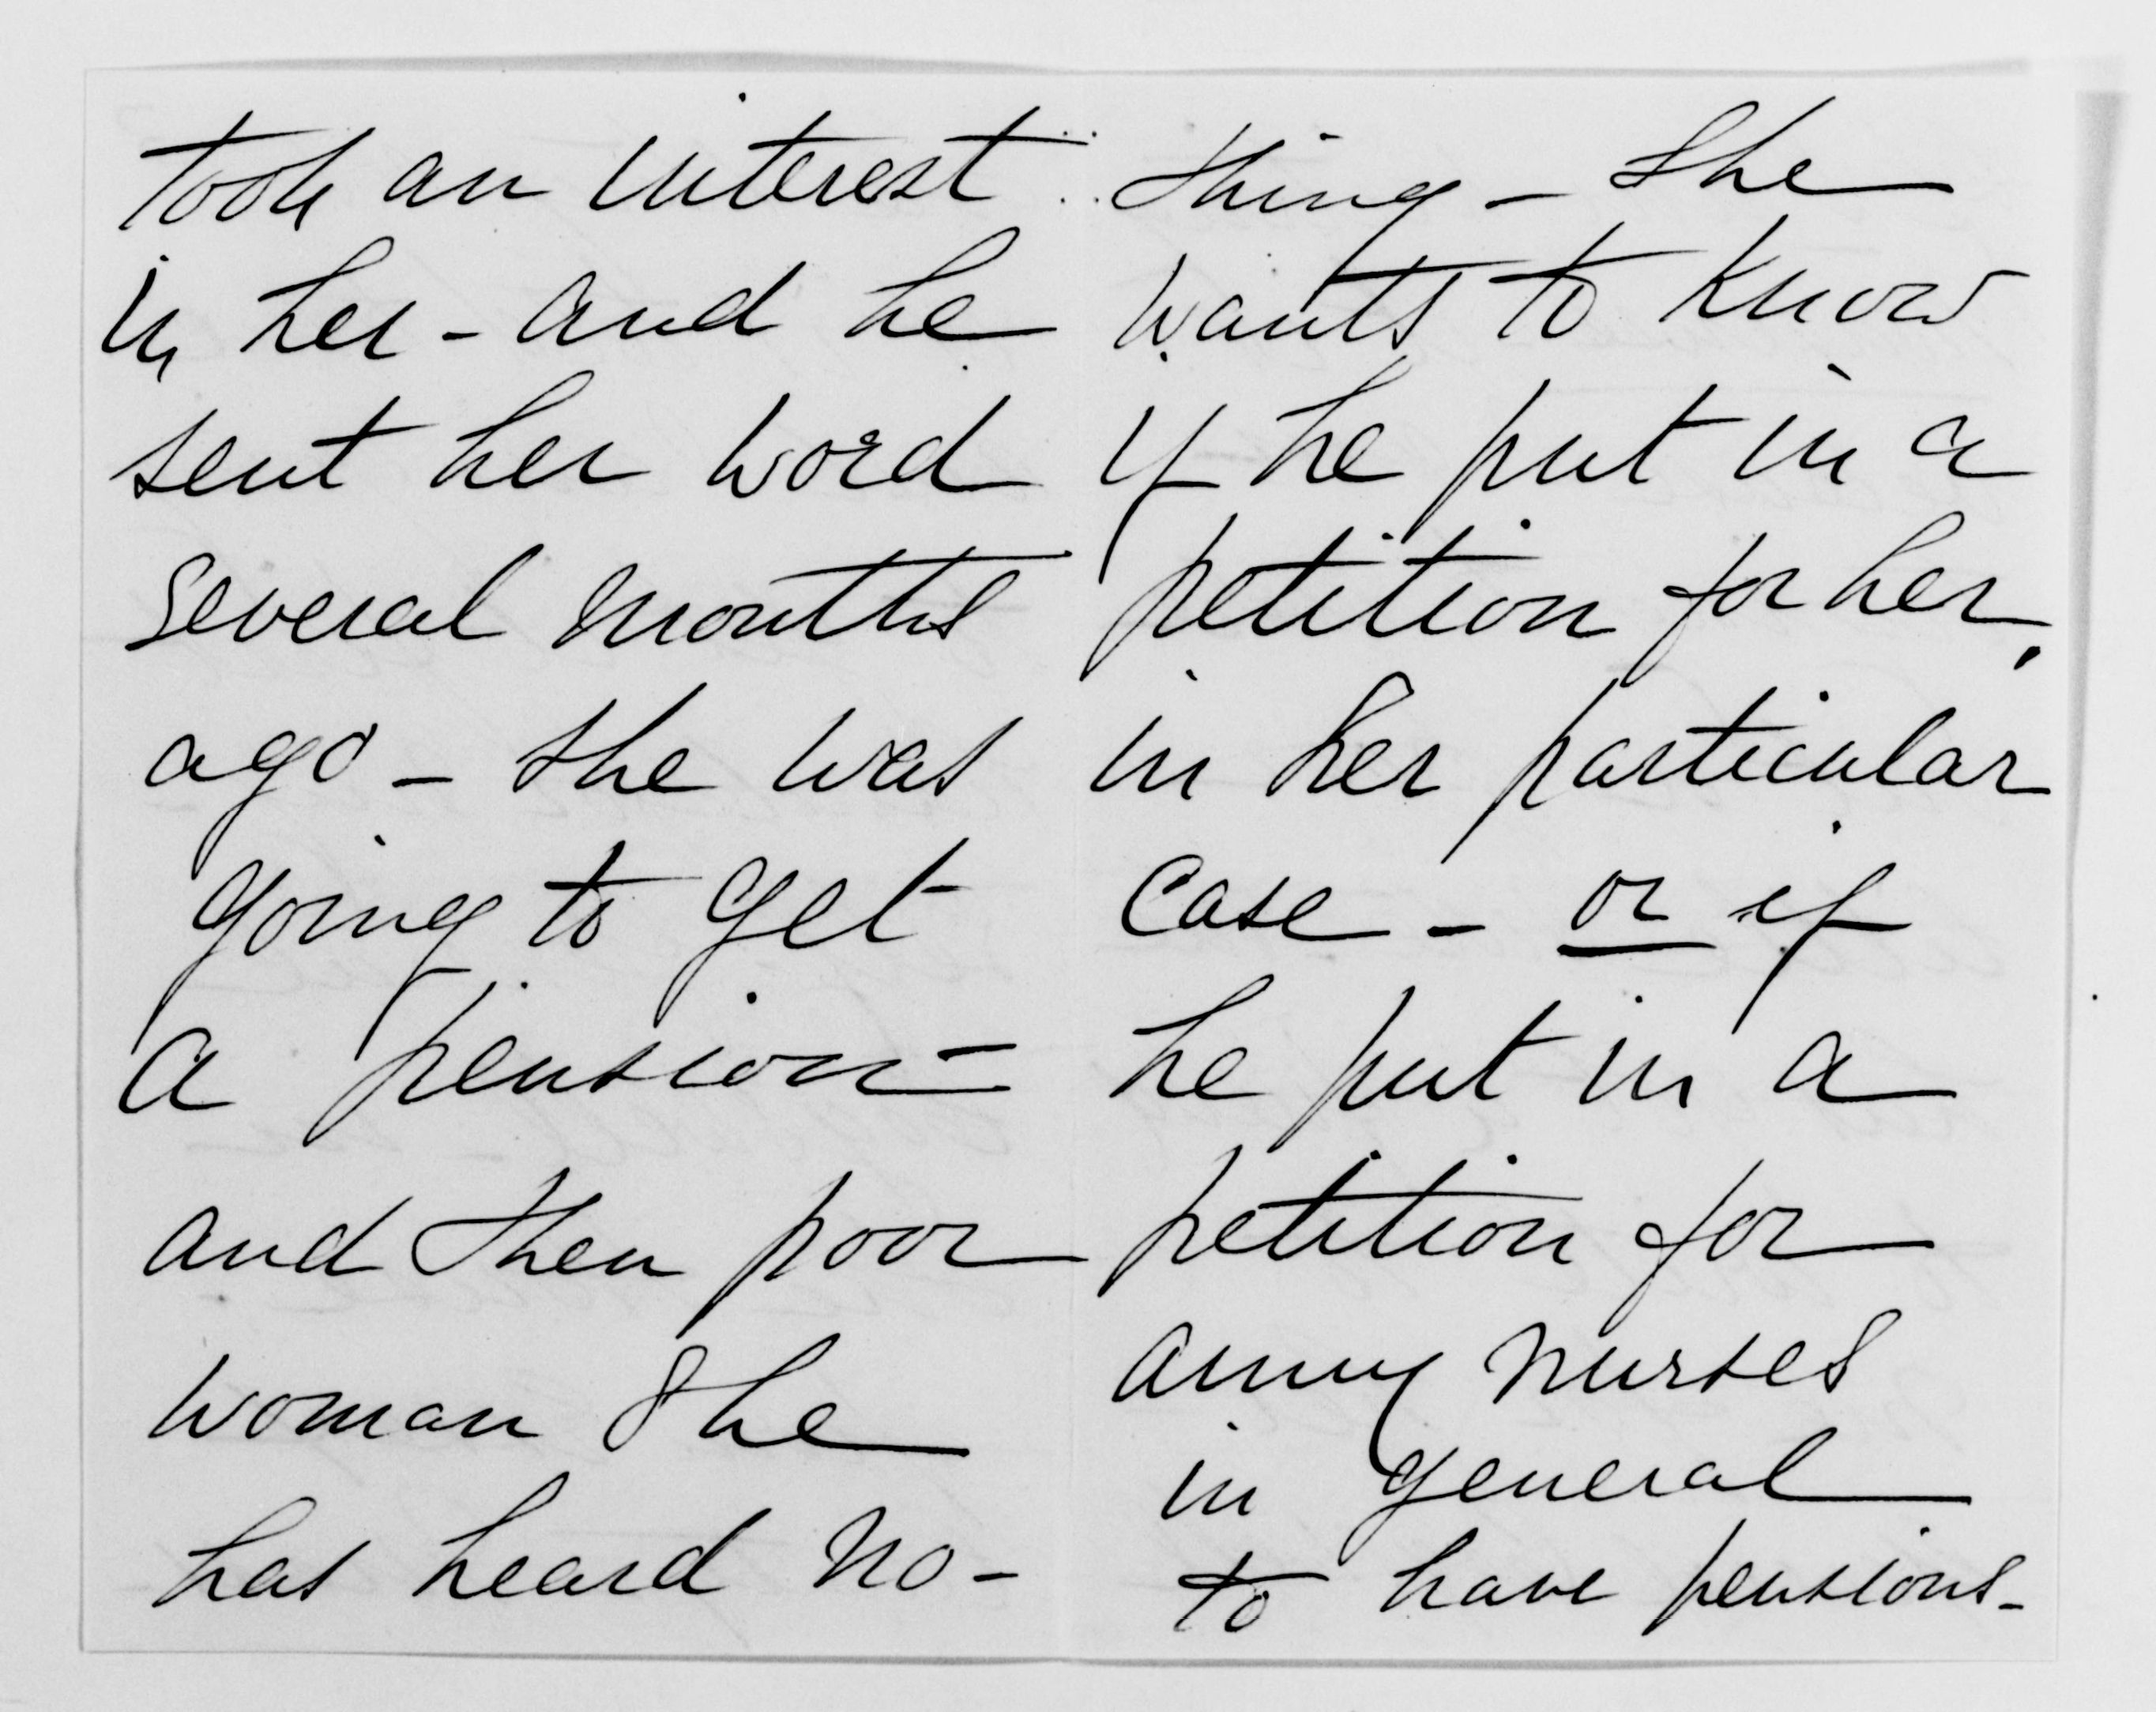 took an interest
in her - and he
sent her word
several months
ago - she was
going to get
a pension =
and then poor
woman She
has heard no-
thing - She
wants to know
if he put in a
petition for her,
in her particular
case - or if
he put in a
petition for
army nurses
in general
to have pensions -